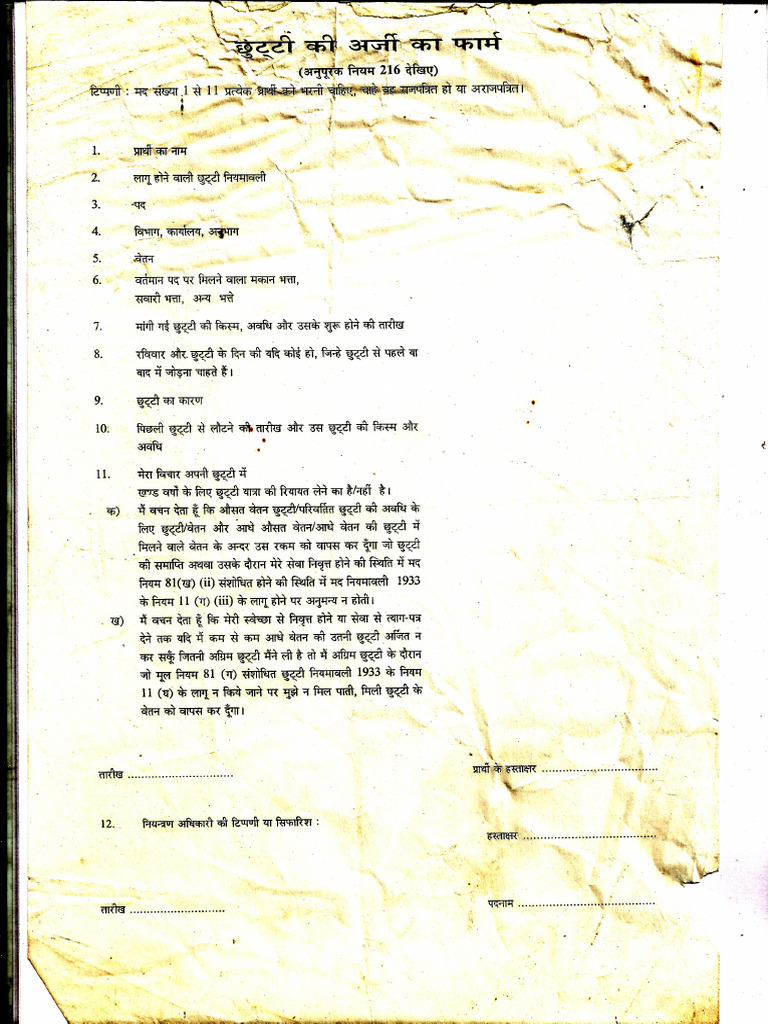 छुट्टी की अर्जी का फार्म
(अनुपूरक नियम 216 देखिए)
टिप्पणी : मद संख्या 1 से 11 प्रत्येक प्रार्थी को भरनी चाहिए, चाहे वह राजपत्रित हो या अराजपत्रित।
1. प्रार्थी का नाम
2. लागू होने वाली छुट्टी नियमावली
3. पद
4. विभाग, कार्यालय, अनुभाग
5. वेतन
6. वर्तमान पद पर मिलने वाला मकान भत्ता,
सवारी भत्ता, अन्य भत्ते
7. मांगी गई छुट्टी की किस्म, अवधि और उसके शुरू होने की तारीख
8. रविवार और छुट्टी के दिन की यदि कोई हो, जिन्हे छुट्टी से पहले या
बाद में जोड़ना चाहते हैं।
9. छुट्टी का कारण
10. पिछली छुट्टी से लौटने की तारीख और उस छुट्टी की किस्म और
अवधि
11. मेरा विचार अपनी छुट्टी में
खण्ड वर्षो के लिए छुट्टी यात्रा की रियायत लेने का है/नहीं है।
क) मैं वचन देता हूँ कि औसत वेतन छुट्टी/परिवर्तित छुट्टी की अवधि के
लिए छुट्टी/वेतन और आधे औसत वेतन/आधे वेतन की छुट्टी में
मिलने वाले वेतन के अन्दर उस रकम को वापस कर दूँगा जो छुट्टी
की समाप्ति अथवा उसके दौरान मेरे सेवा निवृत्त होने की स्थिति में मद
नियम 81(ख) (ii) संशोधित होने की स्थिति में मद नियमावली 1933
के नियम 11 (ग) (iii) के लागू होने पर अनुमन्य न होती।
ख) मैं वचन देता हूँ कि मेरी स्वेच्छा से निवृत्त होने या सेवा से त्याग-पत्र
देने तक यदि मैं कम से कम आधे वेतन की उतनी छुट्टी अर्जित न
कर सकूँ जितनी अग्रिम छुट्टी मैंने ली है तो मैं अग्रिम छुट्टी के दौरान
जो मूल नियम 81 (ग) संशोधित छुट्टी नियमावली 1933 के नियम
11 (घ) के लागू न किये जाने पर मुझे न मिल पाती, मिली छुट्टी के
वेतन को वापस कर दूँगा।
तारीख ............................... प्रार्थी के हस्ताक्षर ...................................
12. नियन्त्रण अधिकारी की टिप्पणी या सिफारिश :
हस्ताक्षर .......................................
तारीख ............................ पदनाम ........................................